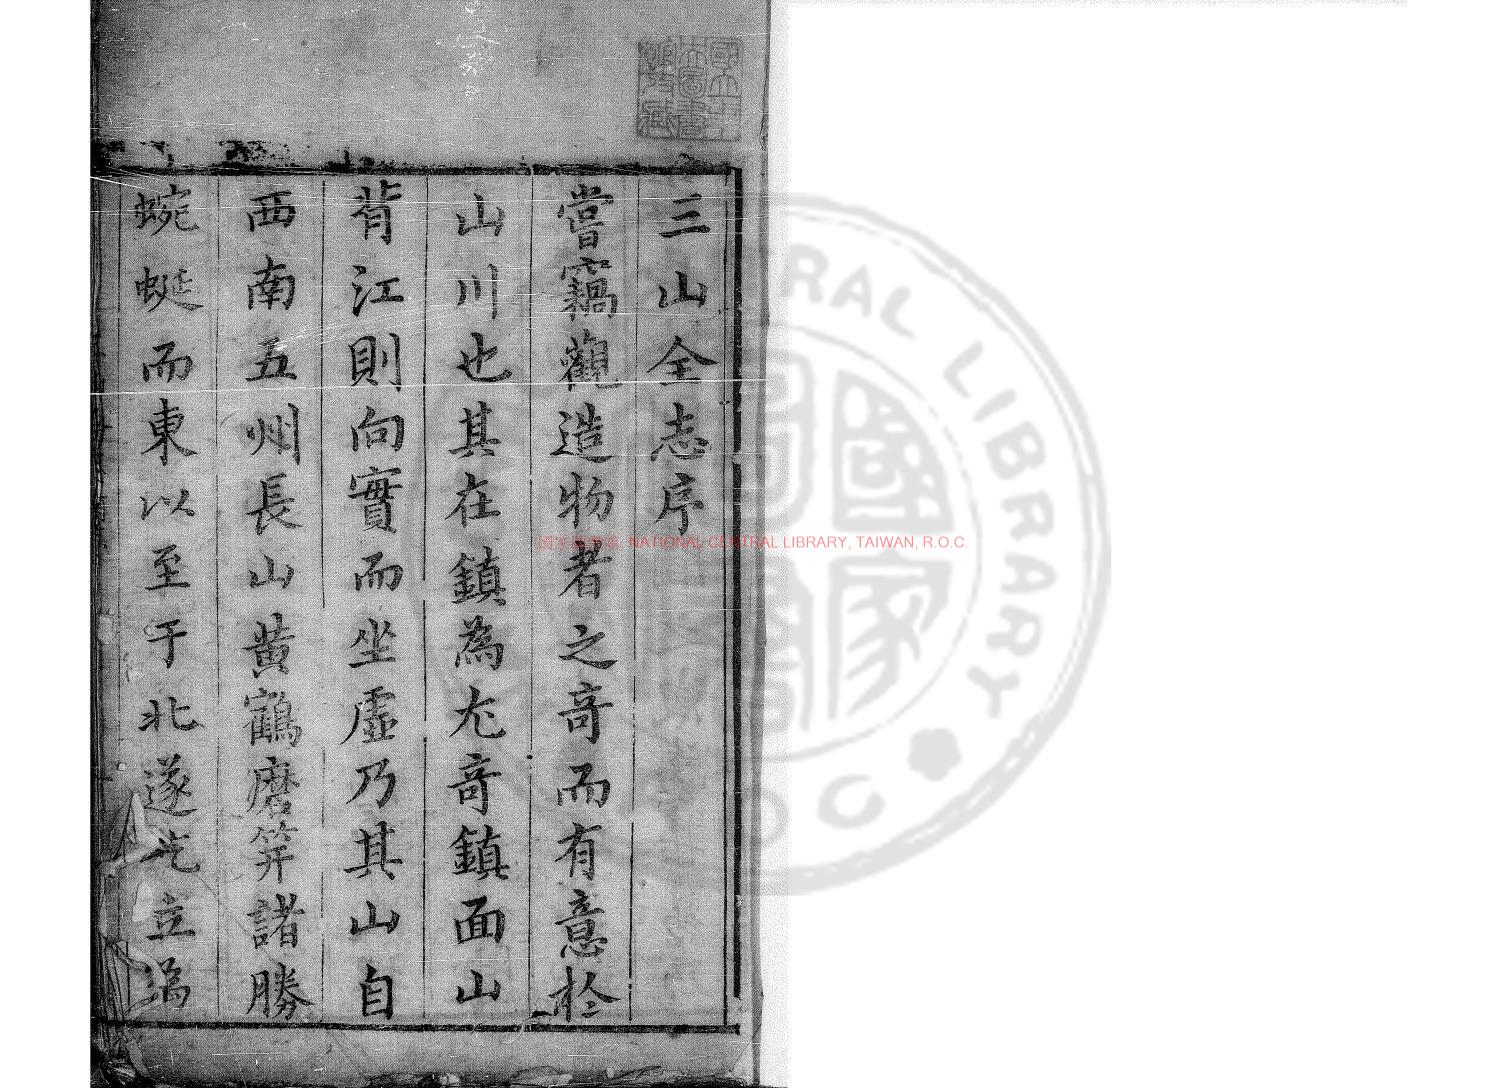 三山全志序
嘗竊觀造物者之奇而有意於
山川也其在鎮為尤奇鎮面山
背江則向實而坐虛乃其山自
西南五州長山黄鶴磨笄諸勝
蜿蜒而東以至于北遂屹立為
國立中央圖書館收藏
國家圖書館, NATIONAL CENTRAL LIBRARY, TAIWAN, R.O.C.